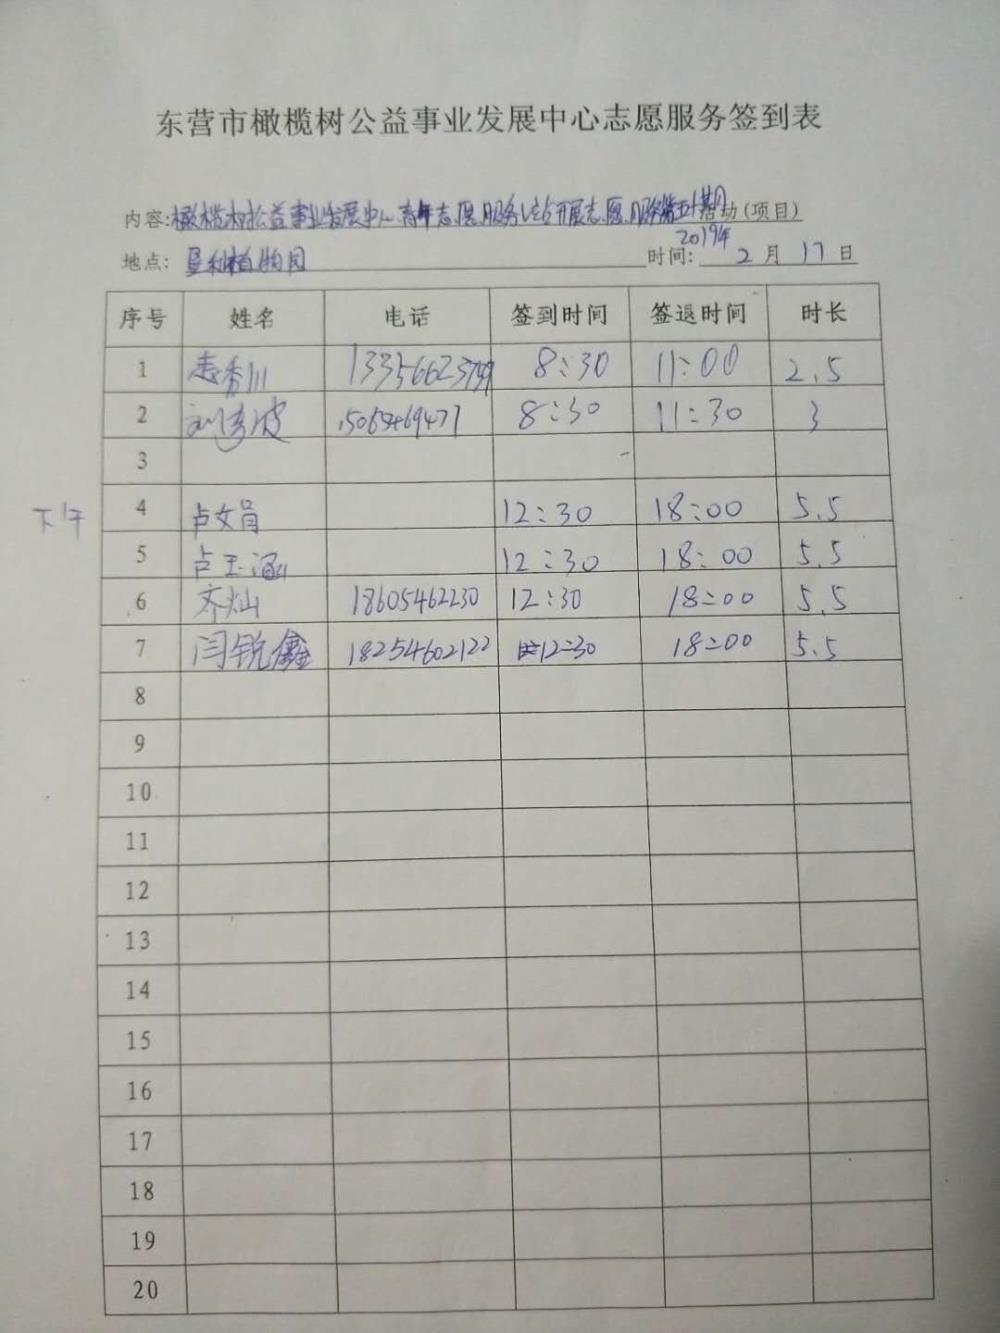 东营市橄榄树公益事业发展中心志愿服务签到表
内容:橄榄树公益事业发展中心青年志愿服务V站开展志愿服务第五十期活动(项目)
2019年
地点: 垦利植物园 时间: 2 月 17 日
序号 姓名 电话 签到时间 签退时间 时长
1 香川 13356623799 8:30 11:00 2.5
2 刘 波 15065469471 8:30 11:30 3
3
下午
4 卢文娟 12:30 18:00 5.5
5 卢玉涵 12:30 18:00 5.5
6 齐灿 18605462230 12:30 18:00 5.5
7 闫锐鑫 18254602122 12:30 18:00 5.5
8
9
10
11
12
13
14
15
16
17
18
19
20